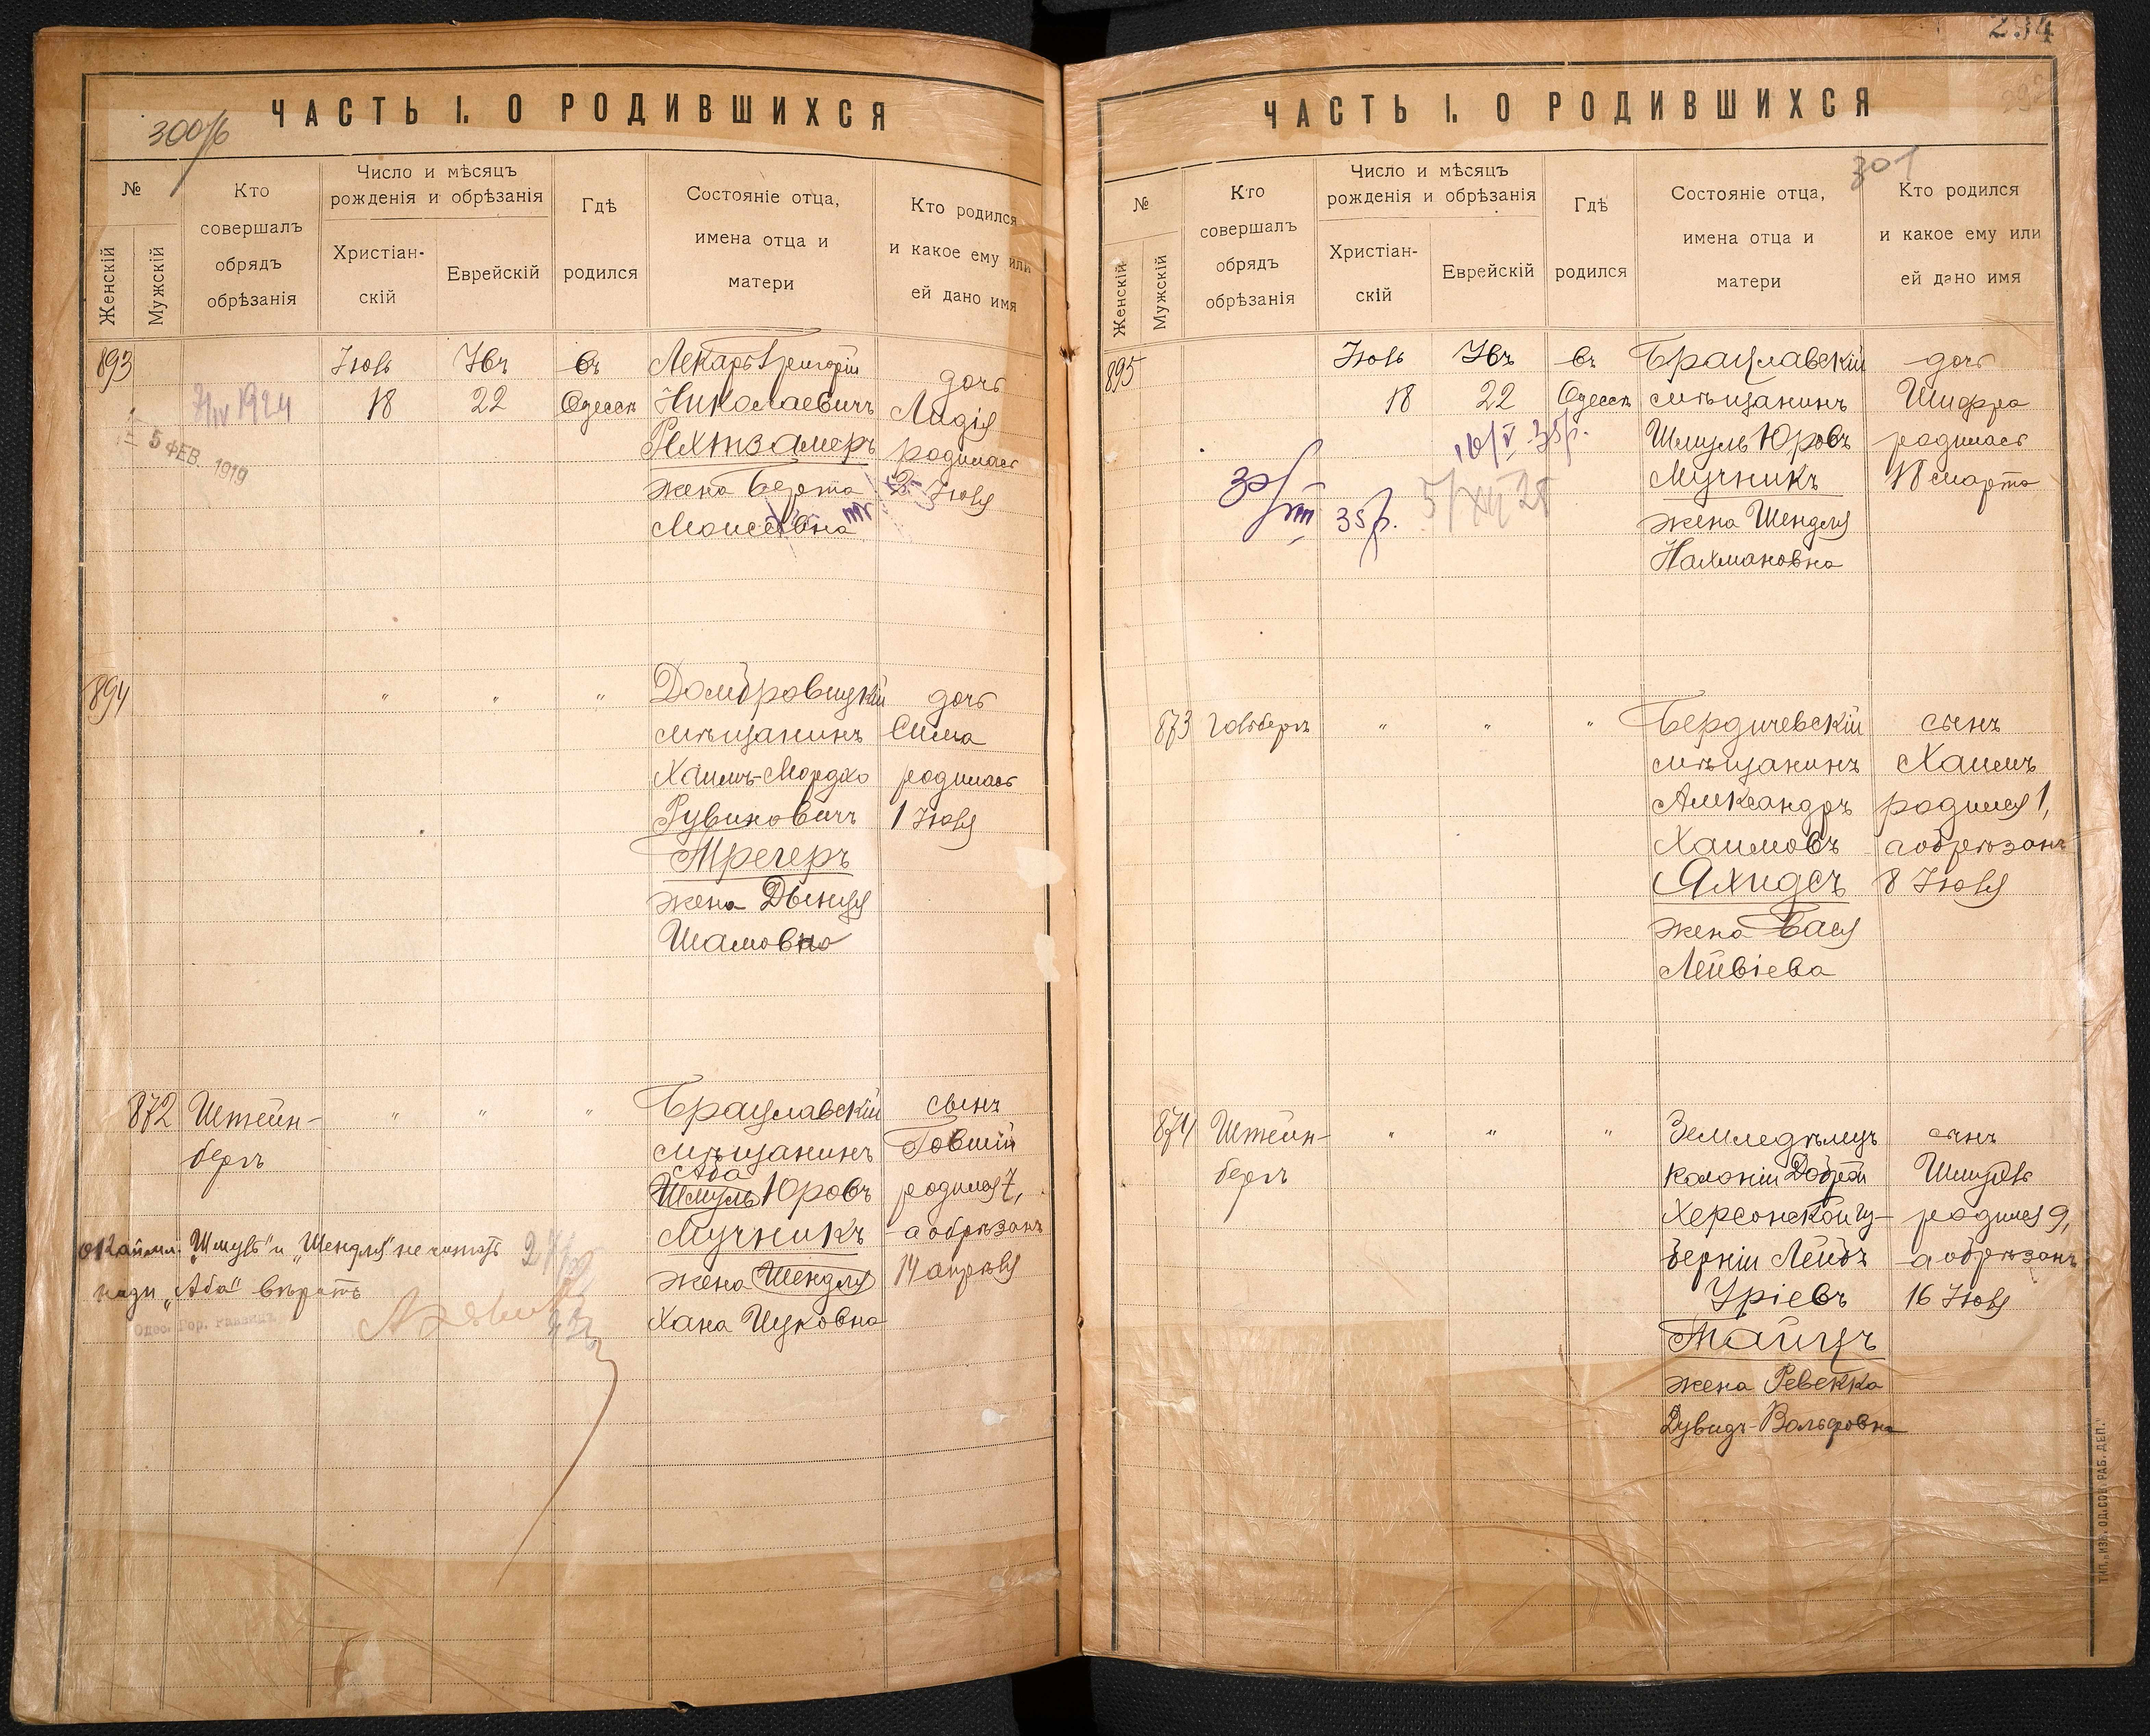 ЧАСТЬ I. О РОДИВШИХСЯ
300/б
№
Женскій
Мужскій
Кто
совершалъ
обрядъ
обрѣзанія
Число и мѣсяцъ
рожденія и обрѣзанія
Христіан-
скій
Еврейскій
Гдѣ
родился
Состояніе отца,
имена отца и
матери
Кто родился
и какое ему или
ей дано имя
893
Іюль
18
22
въ
Одессѣ
5 ФЕВ. 1919
Лекарь Григорій
Николаевичъ
Рехтзамеръ
жена Берта
Моисеевна
дочь
Лидія
родилась
Іюля
894
" " "
Домбровицкій
мѣщанинъ
Хаимъ-Мордко
Рувиновичъ
Трегеръ
жена Двейця
Шамовна
дочь
Сима
родилась
1 Іюля
872
Штейн-
бергъ
" " "
Брацлавскій
мѣщанинъ
Аба
Шмуль Юровъ
Мучникъ
жена Шендля
Хана Ицковна
сынъ
Говшій
родился 7,
а обрѣзанъ
14 апрѣля
окаймл. "Шмуль" и "Шендля" не читать
надп. "Аба" вѣрить
Одес. Гор. Раввинъ
ЧАСТЬ I. О РОДИВШИХСЯ
234
301
№
Женскій
Мужскій
Кто
совершалъ
обрядъ
обрѣзанія
Число и мѣсяцъ
рожденія и обрѣзанія
Христіан-
скій
Еврейскій
Гдѣ
родился
Состояніе отца,
имена отца и
матери
Кто родился
и какое ему или
ей дано имя
895
Іюль
18
22
въ
Одессѣ
16/V 35 р.
30/VIII 35 р.
5/XII 28
Брацлавскій
мѣщанинъ
Шмуль Юровъ
Мучникъ
жена Шендля
Нахмановна
дочь
Шифра
родилась
18 марта
873
" " "
Бердичевскій
мѣщанинъ
Александръ
Хаимовъ
Яхидсъ
жена Бася
Лейвіева
сынъ
Хаимъ
родился 1,
а обрѣзанъ
8 Іюля
874
Штейн-
бергъ
" " "
Земледѣлецъ
колоніи Доброй
Херсонской гу-
берніи Лейбъ
Уріевъ
Тайцъ
жена Ревекка
Дувидъ-Вольфовна
сынъ
Шмуль
родился 9,
а обрѣзанъ
16 Іюля
ТИП. „ИЗВ. ОД. СОВ. РАБ. ДЕП."